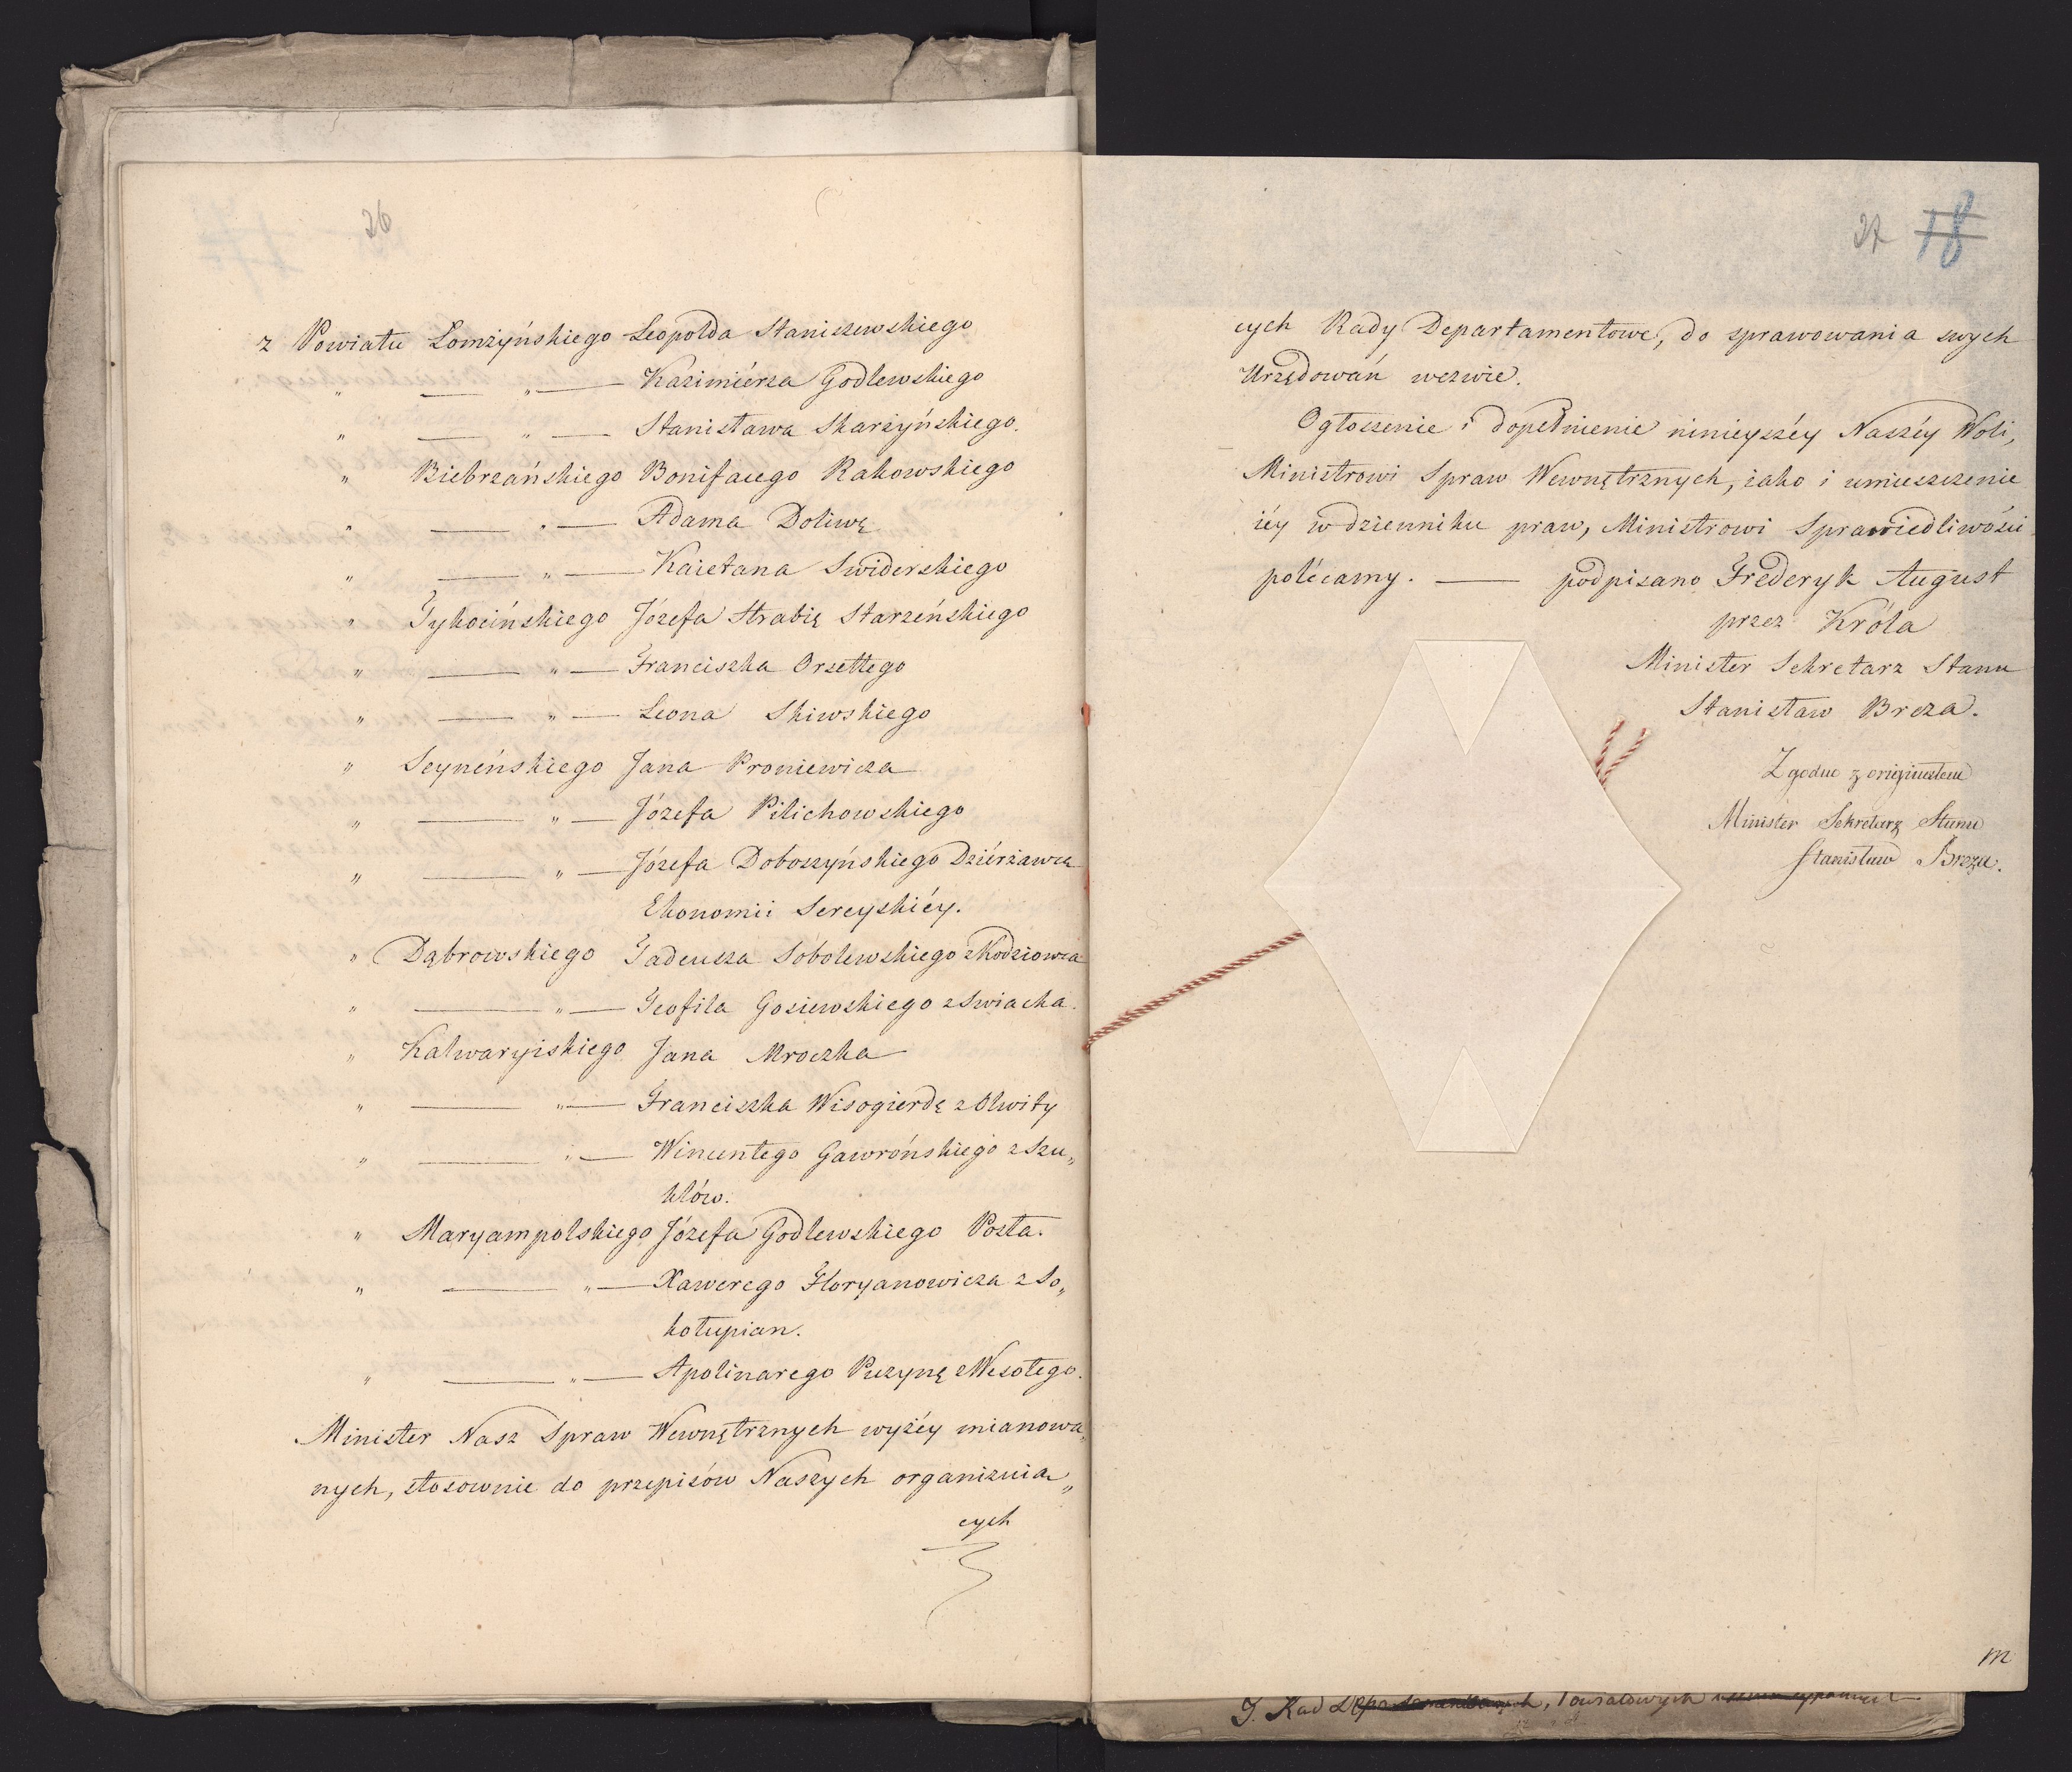 26
z Powiatu Łomżyńskiego Leopolda Staniszewskiego
" — " — Kazimiérza Godlewskiego
" — " — Stanisława Skarżyńskiego.
" Biebrzańskiego Bonifacego Rakowskiego
" — " — Adama Doliwę
" — " — Kaietana Swiderskiego
" Tykocińskiego Józefa Hrabię Starzeńskiego
" — " — Franciszka Orsettego
" — " — Leona Skiwskiego
" Seyneńskiego Jana Proniewicza
" — " — Józefa Pilichowskiego
" — " — Józefa Doboszyńskiego Dziérżawcę
Ekonomii Sereyskiéy.
" Dąbrowskiego Tadeusza Sobolewskiego z Kodziowca
" — " — Teofila Gosiewskiego z Swiacka.
" Kalwaryiskiego Jana Mroczka
" — " — Franciszka Wisogierdę z Olwity
" — " — Wincentego Gawrońskiego z Szu„
kłów.
" Maryampolskiego Józefa Godlewskiego Posła.
" — " — Xawerego Floryanowicza z So„
kołupian.
" — " — Apolinarego Puzynę z Wesołego.
Minister Nasz Spraw Wewnętrznych wyżéy mianowa„
nych, stosownie do przepisów Naszych organizuią„
cych
27 18
cych Rady Departamentowe, do sprawowania swych
Urzędowań wezwie.
Ogłoszenie i dopełnienie ninieyszéy Naszéy Woli,
Ministrowi Spraw Wewnętrznych, iako i umieszczenie
iéy w dzienniku praw, Ministrowi Sprawiedliwości
polécamy. — podpisano Frederyk August
przez Króla
Minister Sekretarz Stanu
Stanisław Breza.
Zgodne z originałem
Minister Sekretarz Stanu
Stanisław Breza.
m
J. Rad Departamentowych, Powiatowych